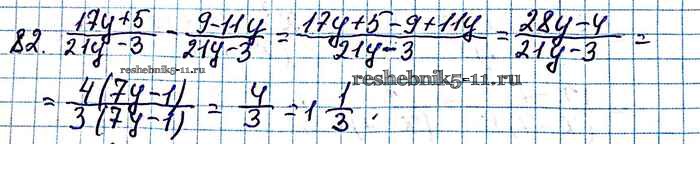 82. (17y+5)/(21y-3) - (9-11y)/(21y-3) = (17y+5-9+11y)/(21y-3) = (28y-4)/(21y-3) =
reshebnik5-11.ru reshebnik5-11.ru
= 4(7y-1)/3(7y-1) = 4/3 = 1 1/3.